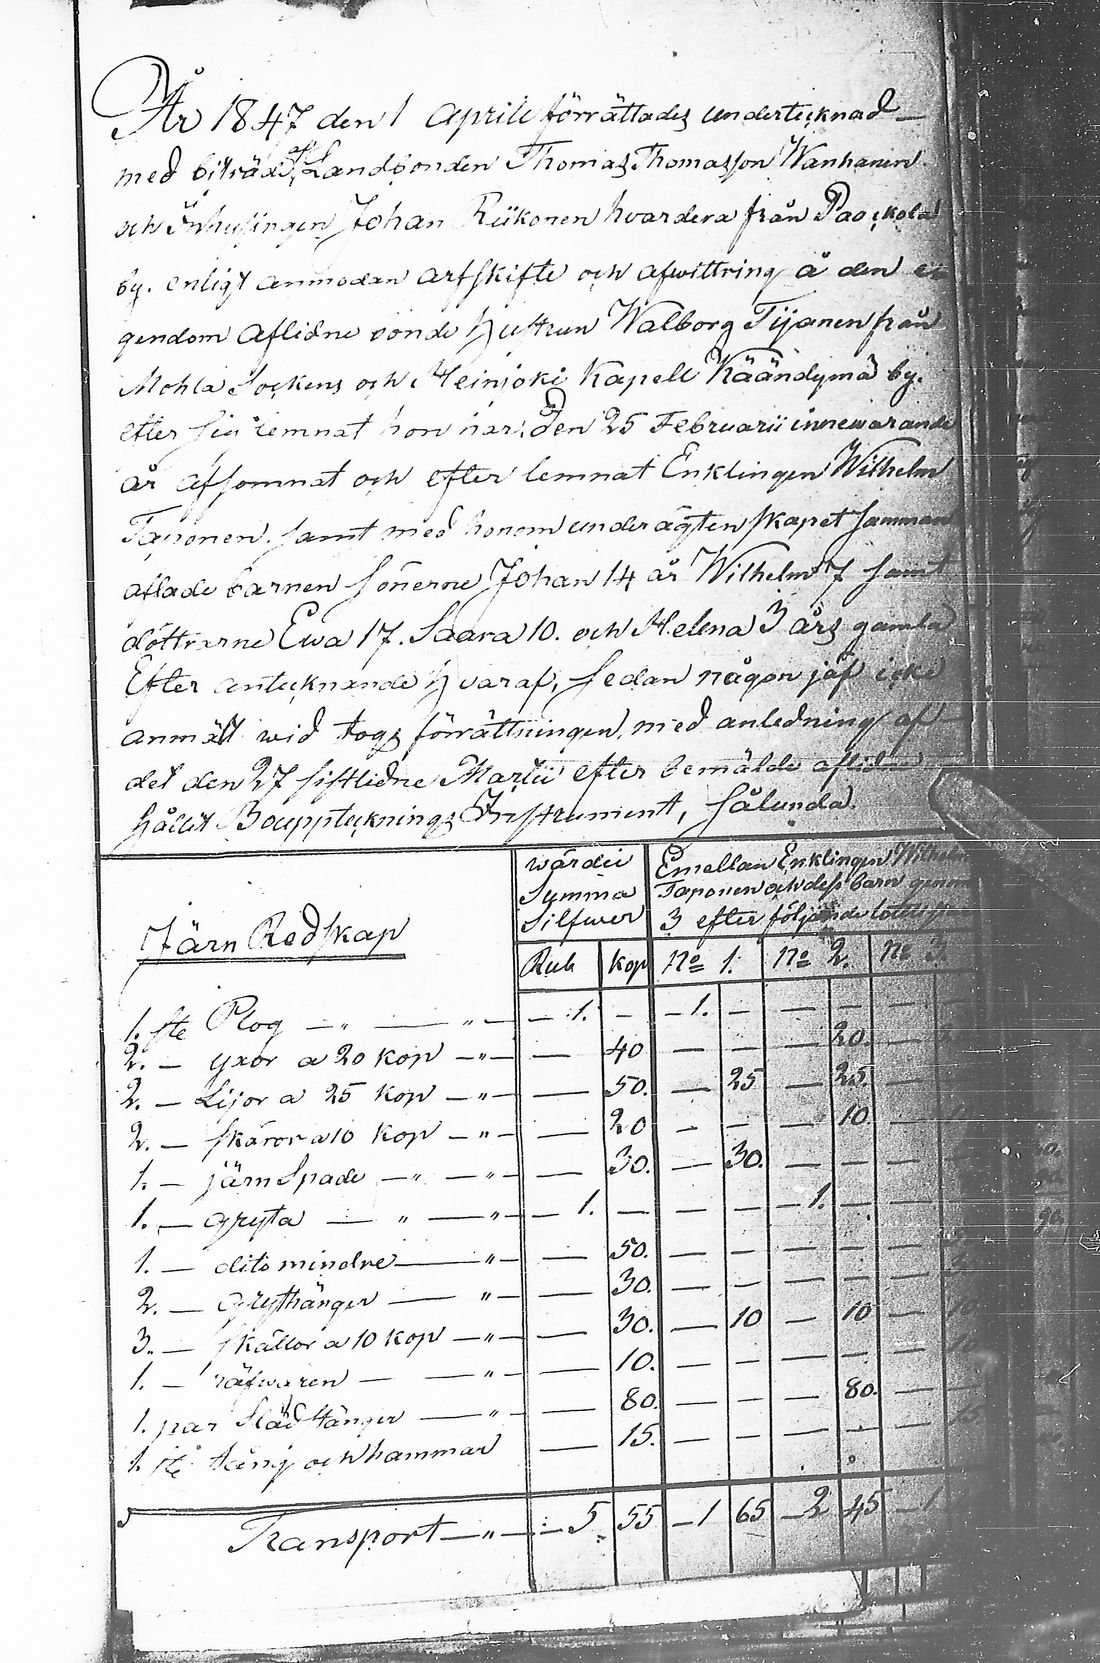 År 1847 den 1 Aprili förrättades undertecknad
med biträde af Landbonden Thomas Thomasson Wanhanen
och Inhysingen Johan Riikonen hvardera från Paockola
by. enligt anmodan arfskifte och afwittring å den e
gendom aflidne bonde hustrun Walborg Tijanen från
Mohla Sockens och Heinjoki Kapell Käändymä by.
efter sig lemnat hon har den 25 Februarii innewarande
år afsomnat och efter lemnat Enklingen Wilhelm
Taponen. samt med honom under ägtenskapet samman
aflade barnen sönerne Johan 14 år Wilhelm 7 samt
döttrarne Ewa 17. Saara 10. och Helena 3 års gamla
Efter antecknande hvaraf, sedan någon jäf icke
anmält wid togs förrättningen, med anledning af
det den 27 sistledne Martii efter bemälde aflidne
hållit Boupptecknings Instrument, sålunda.
Järn Redskap
wärdii Symma Silfwer
Emellan Enklingen Wilhelm
Taponen och dess barn genom
3 efter följande
Rub kop No 1. No 2. No 3.
1. ste Plog — „ — „ — 1. — — 1. — — — — —
2. — yxor a 20 kop — „ — — 40 — — — 20. —
2. — Lijor a 25 kop — „ — — 50. — 25 — 25. —
2. — skäror a 10 kop — „ — — 20 — — — 10. —
1. — järn Spade — „ — „ — — 30. — 30. — — —
1. — Gryta — „ — „ — 1. — — — — 1. — — —
1. — dito mindre — „ — — 50. — — — — —
2. — Grythänger — „ — — 30. — — — — —
3. — skällor a 10 kop — „ — — 30. — 10 — 10 — 10
1. — näfwaren — „ — — 10. — — — — — 10
1. par Slädstänger — „ — — 80. — — — 80. — —
1. ste tång och hammar — 15. — — — — — 15.
Transport — „ — 5. 55 — 1 65 — 2 45 — 1